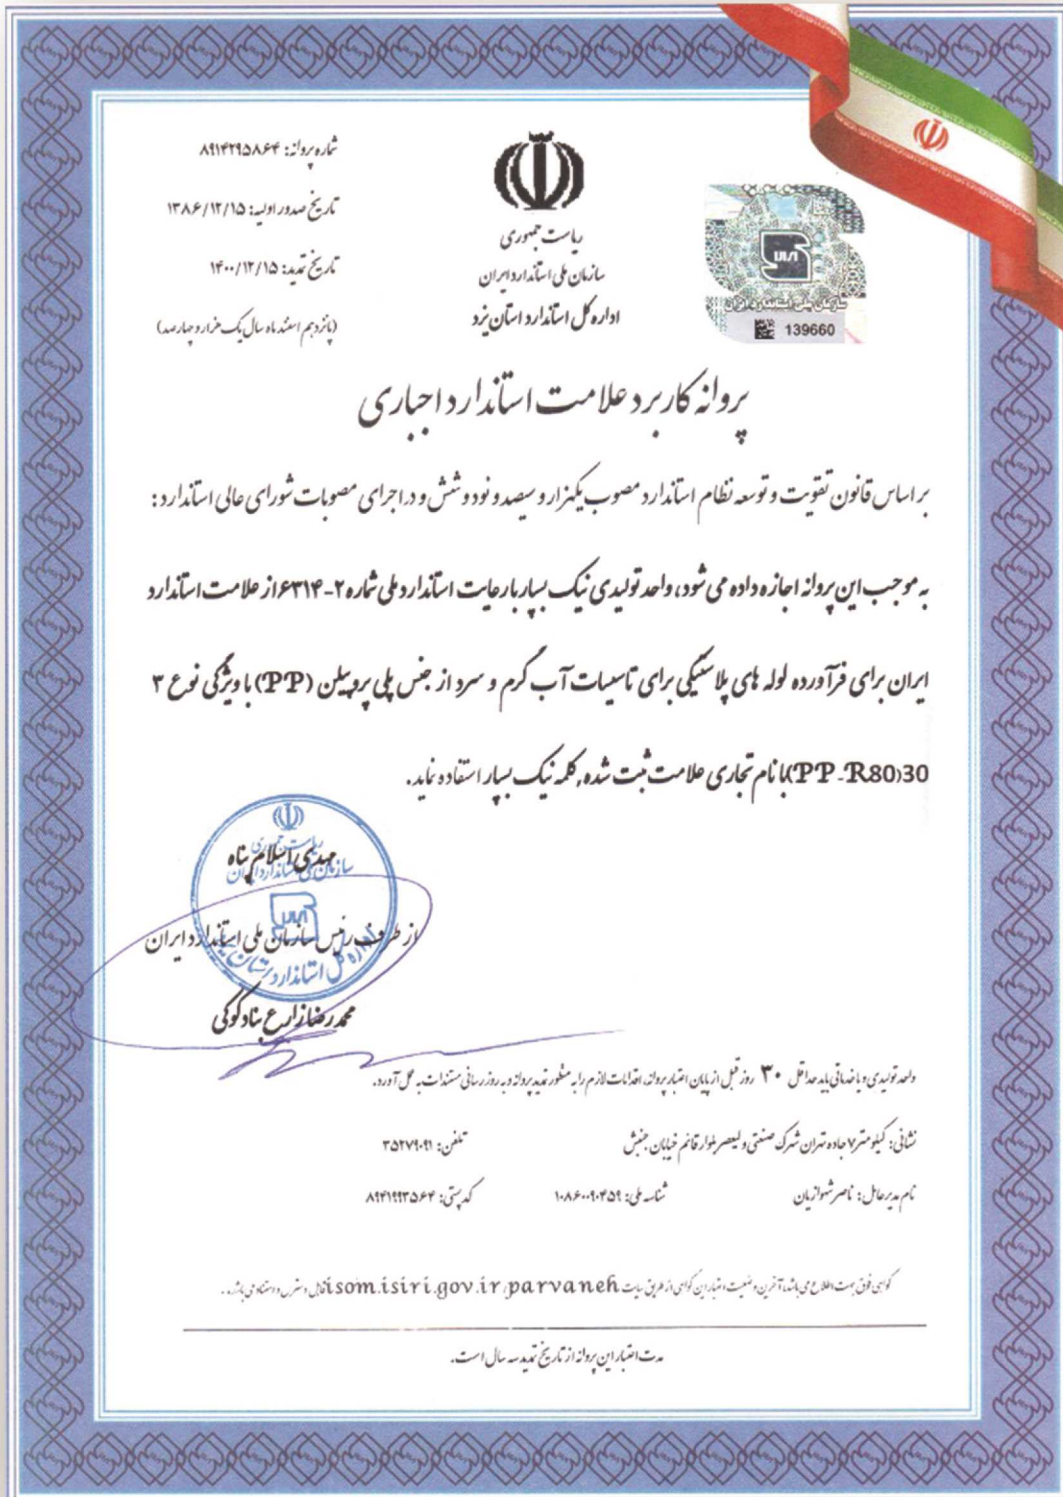 شماره پروانه: ۸۹۱۴۲۹۵۸۶۴
تاریخ صدور اولیه: ۱۳۸۶/۱۲/۱۵
تاریخ تمدید: ۱۴۰۰/۱۲/۱۵
(پانزدهم اسفند ماه سال یک هزار و چهارصد)
ریاست جمهوری
سازمان ملی استاندارد ایران
اداره کل استاندارد استان یزد
سازمان ملی استاندارد ایران
139660
پروانه کاربرد علامت استاندارد اجباری
بر اساس قانون تقویت و توسعه نظام استاندارد مصوب یکهزار و سیصد و نود و شش و در اجرای مصوبات شورای عالی استاندارد :
به موجب این پروانه اجازه داده می شود، واحد تولیدی نیک بسپار با رعایت استاندارد ملی شماره ۲-۶۳۱۴ از علامت استاندارد
ایران برای فرآورده لوله های پلاستیکی برای تاسیسات آب گرم و سرد از جنس پلی پروپیلن (PP) با ویژگی نوع ۳
30(PP-R80) با نام تجاری علامت ثبت شده, کلمه نیک بسپار استفاده نماید.
مهدی اسلام پناه
از طرف رئیس سازمان ملی استاندارد ایران
محمد رضا زارع بنادکوکی
ریاست جمهوری
سازمان ملی استاندارد ایران
اداره کل استاندارد استان یزد
واحد تولیدی و یا خدماتی باید حداقل ۳۰ روز قبل از پایان اعتبار پروانه، اقدامات لازم را به منظور تمدید پروانه و به روز رسانی مستندات به عمل آورد.
نشانی: کیلومتر ۷ جاده تهران شهرک صنعتی ولیعصر بلوار قائم خیابان جنبش تلفن: ۳۵۲۷۹۰۹۱
نام مدیرعامل: ناصر شهوازیان شناسه ملی: ۱۰۸۶۰۰۹۰۴۵۹ کد پستی: ۸۹۴۱۹۹۳۵۶۴
گواهی فوق جهت اطلاع می باشد، آخرین وضعیت اعتبار این گواهی از طریق سایت isom.isiri.gov.ir/parvaneh قابل دسترس و استناد می باشد.
مدت اعتبار این پروانه از تاریخ تمدید سه سال است.